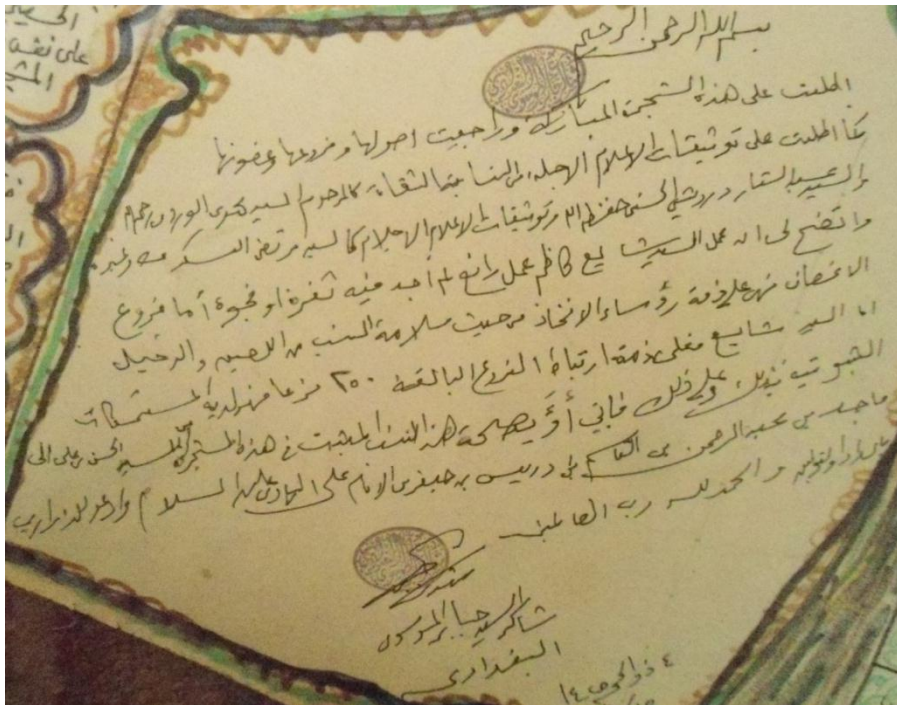 الحسين
على نفس
المش
بسم الله الرحمن الرحيم
اطلعت على هذه الشجرة المباركة وراجعت اصولها وفروعها وغصونها
كما اطلعت على توثيقات الاعلام الاجلاء من النسابة الثقات كالمرحوم السيد الوردي رحمه
والسيد عبد الستار درويش الحسني حفظه الله وتوثيقات الاعلام الاجلاء كالسيد مرتضى العسكري وغيره
واتضح لي ان عمل السيد شايع كاظم عمل رائع لم اجد فيه ثغرة او فجوة أما فروع
الاغصان فهي على ذمة رؤساء الافخاذ من حيث سلامة النسب من اللصيق والدخيل
اما السيد شايع فعلى ذمة ارتباط الفروع البالغة ٢٥٠ فرعا فهو لديه المستمسكات
الثبوتية بذلك وعلى ذلك فاني أؤيد صحة هذا النسب المثبت في هذه المشجرة للسيد الحسن بن علي الى
ماجد بن عبد الرحمن بن القاسم بن ادريس بن جعفر بن الامام علي الهادي عليه السلام
والحمد لله رب العالمين
شاكر السيد جبار الموسوي
البغدادي
٤ ذو الحجة ١٤